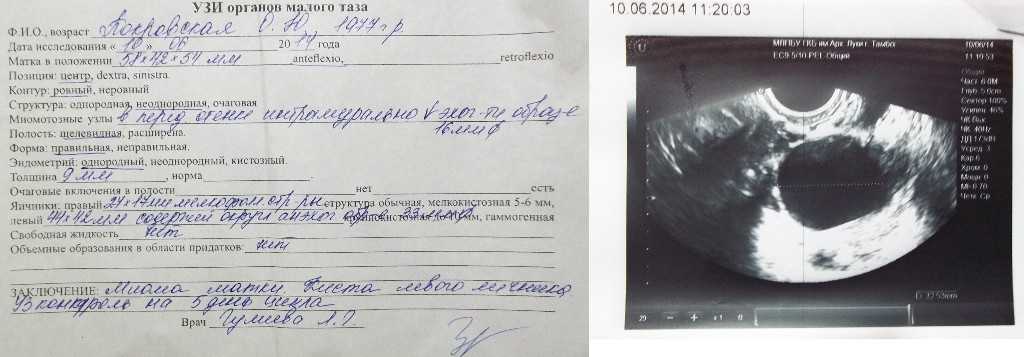 УЗИ органов малого таза
Ф.И.О., возраст Покровская О. Ю, 1977 г.р
Дата исследования « 10 » 06 2014 года
Матка в положении 58х42х54 мм anteflexio, retroflexio
Позиция: центр, dextra, sinistra.
Контур: ровный, неровный
Структура: однородная, неоднородная, очаговая
Миомотозные узлы в перед стенке интрамурально ↓ эхог-ти образ-е
16мм
Полость: щелевидная, расширена.
Форма: правильная, неправильная.
Эндометрий: однородный, неоднородный, кистозный.
Толщина 9 мм, норма
Очаговые включения в полости нет есть
Яичники: правый 27х17мм структура обычная, мелкокистозная 5-6 мм,
левый 44х42мм содержит округл анэхог обр-е 33мм мм, гаммогенная
Свободная жидкость нет
Объемные образования в области придатков: нет
ЗАКЛЮЧЕНИЕ: Миома матки. Киста левого яичника
УЗ контроль на 5 день цикла
Врач Гулиева Л.Г.
10.06.2014 11:20:03
МЛПБУ ГКБ им.Арх.Луки г. Тамбо 10/06/14
EC9-5/10 PEL Общий 11:10:53
Общий
Част. 6.0M
Глуб. 5.0cm
Сектор 100%
Усилен. 46%
ЧК Вых
ЧК 40Hz
ДД 173dB
Усред. 3
Кар 6
Хром. 0
Мощн. 0
MI 0.70
Чстк. Ср
D: 32.53mm
29 − + x1 0